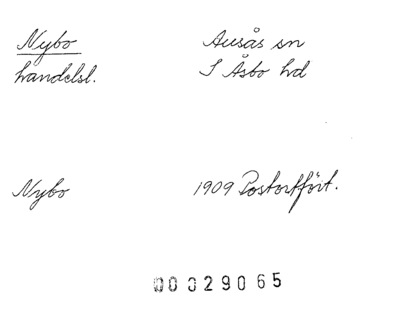 Nybo Ausås sn
handelsl. S Åsbo hd
Nybo 1909 Postortfört.
00029065